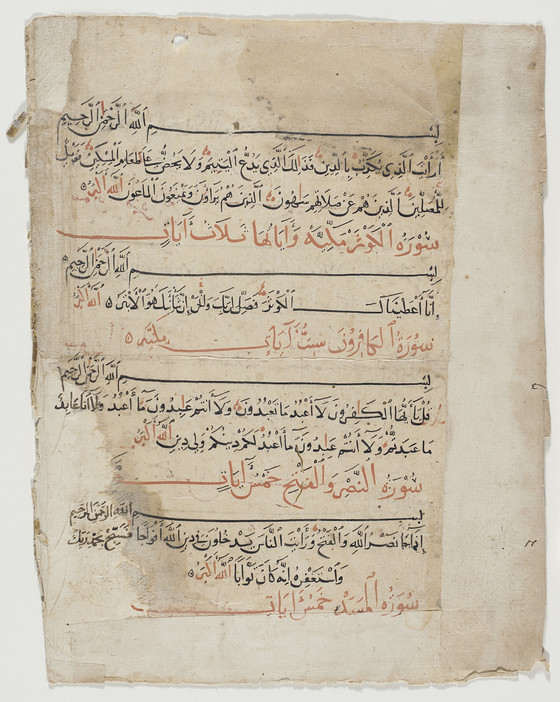 بسم الله الرحمن الرحيم
أرأيت الذي يكذب بالدين فذلك الذي يدع اليتيم ولا يحض على طعام المسكين فويل
للمصلين الذين هم عن صلاتهم ساهون الذين هم يراؤن ويمنعون الماعون الله أكبر
سورة الكوثر مكية وآياتها ثلاث آيات
بسم الله الرحمن الرحيم
إنا أعطيناك الكوثر فصل لربك وانحر إن شانئك هو الأبتر الله أكبر
سورة الكافرون ست آيات مكية
بسم الله الرحمن الرحيم
قل يا أيها الكافرون لا أعبد ما تعبدون ولا أنتم عابدون ما أعبد ولا أنا عابد
ما عبدتم ولا أنتم عابدون ما أعبد لكم دينكم ولي دين الله أكبر
سورة النصر والفتح خمس آيات
بسم الله الرحمن الرحيم
إذا جاء نصر الله والفتح ورأيت الناس يدخلون في دين الله أفواجا فسبح بحمد ربك
واستغفره إنه كان توابا الله أكبر
سورة المسد خمس آيات